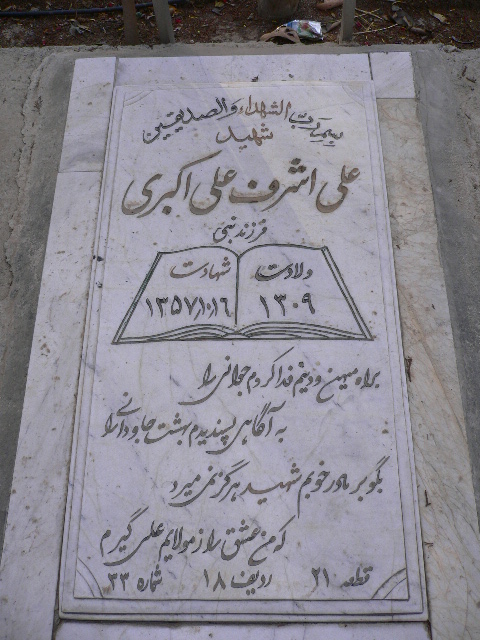 بسم رب الشهداء والصدیقین
شهید
علی اشرف علی اکبری
فرزند نبی
ولادت
۱۳۰۹
شهادت
۱۳۵۷/۱۰/۱۶
براه میهن و دینم فدا کردم جوانی را
به آگاهی پسندیدم بهشت جاودانی را
بگو بر مادر خوبم شهید هرگز نمی میرد
که من عشق را ز مولایم علی گیرم
قطعه ۲۱ ردیف ۱۸ شماره ۲۳